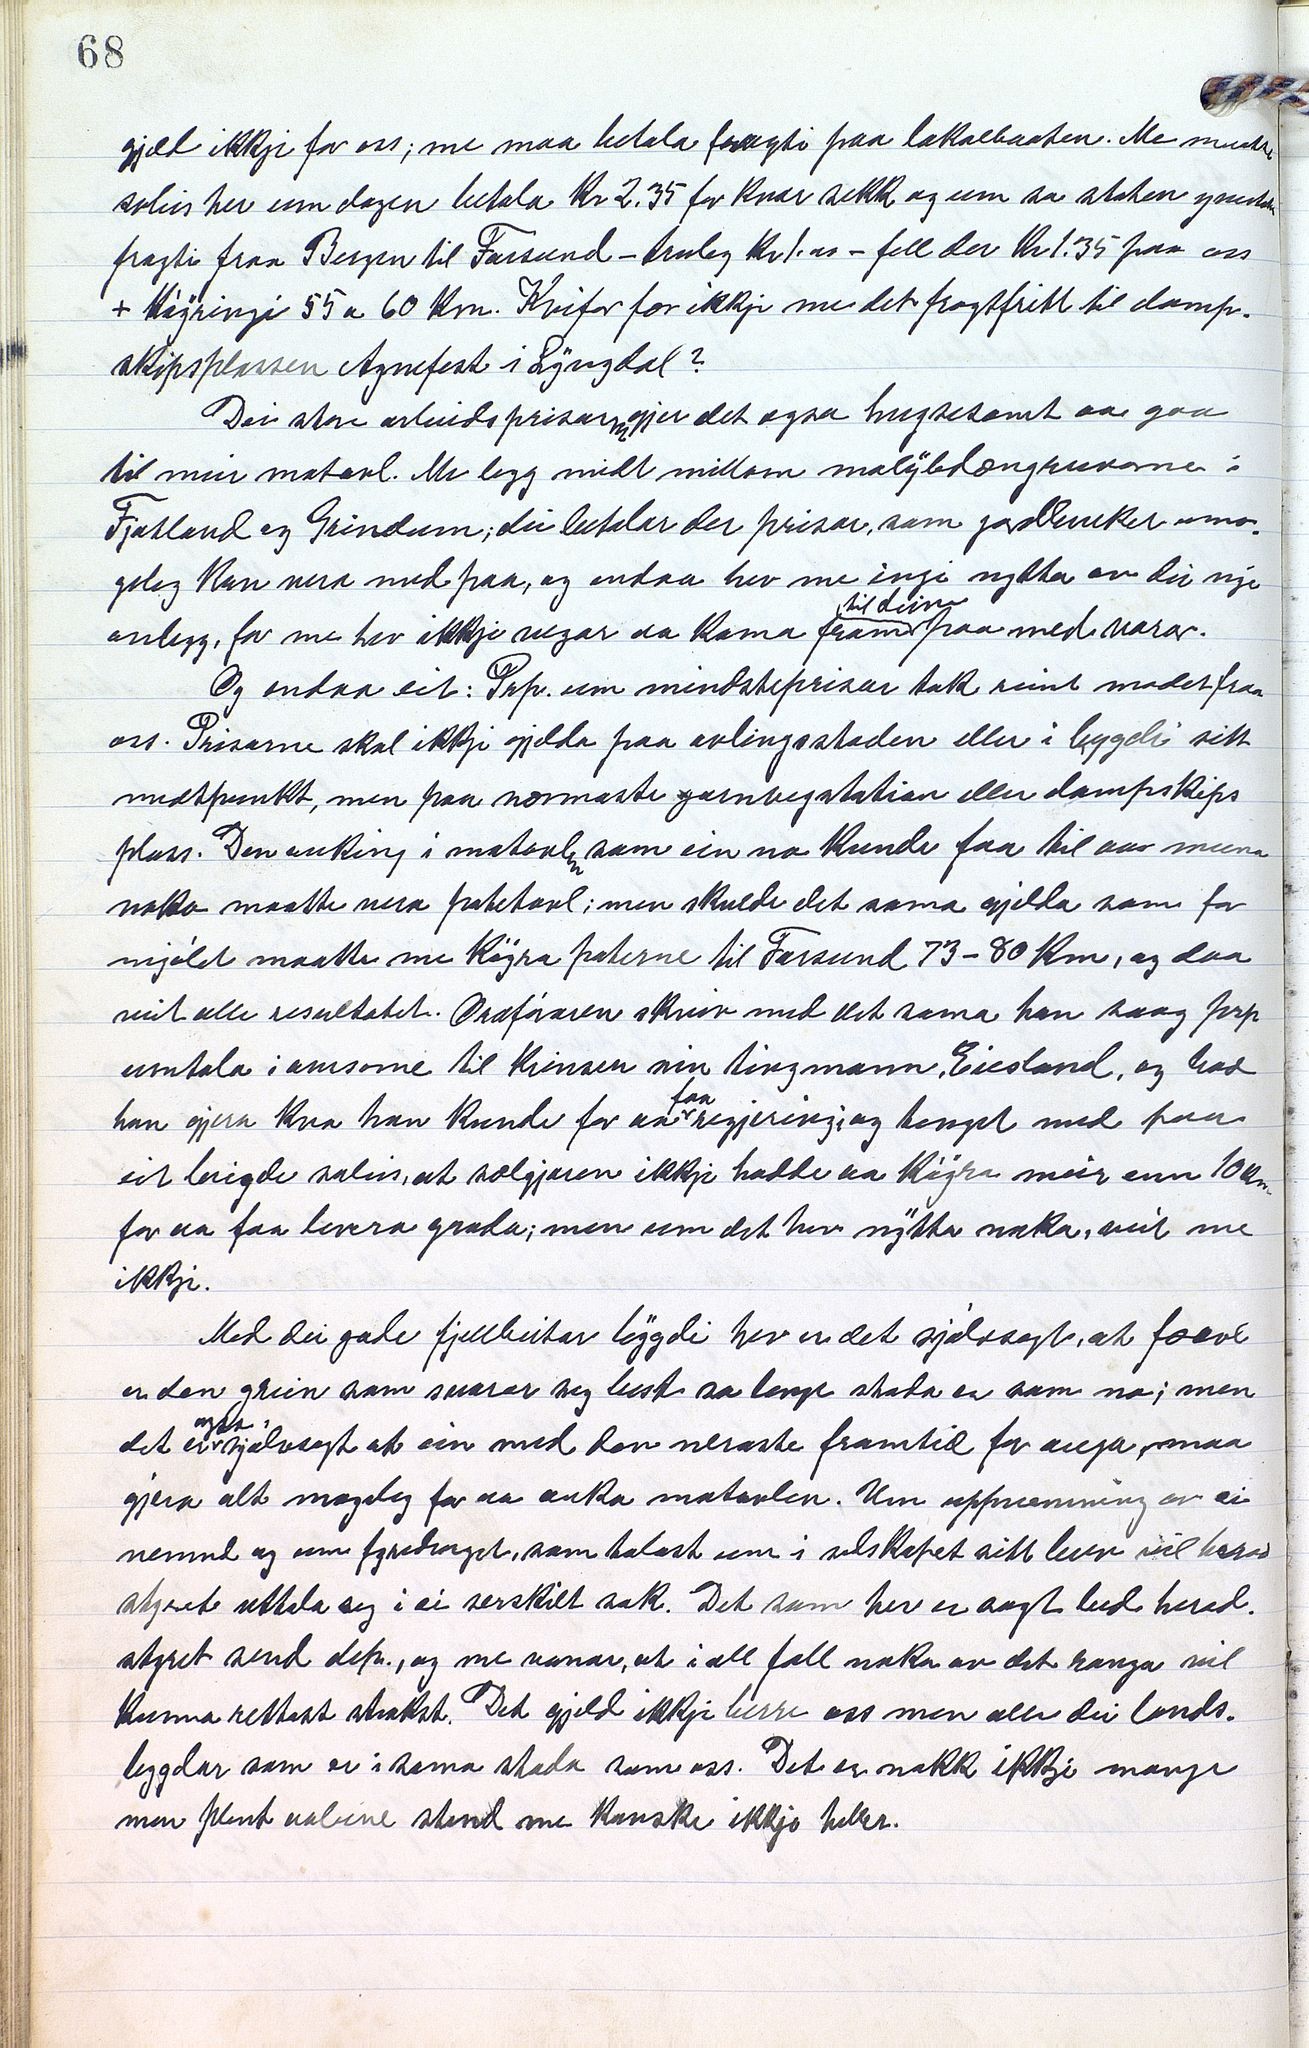 68
gjeld ikkji for oss; me maa betala fragti paa lokalbaaten. Me maatte
soleis her um dagen betala Kr 2.35 for kvar sekk og um so staten ynskte
fragti fraa Bergen til Farsund – truleg Kr 1.00 – fell der Kr 1.35 paa oss
+ Köyringi 55 a 60 Km. Kvifor fær ikkji me det fragtfritt til damp-
skipsplassen Agnefest i Lyngdal?
Dei store arbeidsprisarne gjer det ogsa hugsesamt aa gaa
til meir matavl. Me legg midt millom molybdængruvorne i
Fjotland og Grindum; dei betalar der prisar, som jordbruker umo-
geleg kan vera med paa, og endaa hev me ingi nytta av dei nye
anlegg, for me hev ikkji vegar aa koma fram til deim paa med varor.
Og endaa eit: Prp. um mindsteprisar tok reint modet fraa
oss. Prisarne skal ikkji gjelda paa avlingsstaden eller i bygdi sitt
midtpunkt, men paa næmaste jarnvegstation eller dampskips
plass. Den auking i matavlen som ein no kunde faa til aa muna
noko maatte vera potetavl; men skulde det sama gjelda som for
mjölet maatte me köyra poterne til Farsund 73–80 Km, og daa
veit alle resultatet. Ordföraren skreiv med det sama han saag prp
umtala i avisorne til Krinsen sin tingmann, Eiesland, og bad
han gjera kva han kunde for aa faa regjering og tinget med paa
eit brigde soleis, at sælgjaren ikkji hadde aa köyra meir enn 10 Km
for aa faa levera grøda; men um det hev nytta noko, veit me
ikkji.
Med dei gode fjellbeitar bygdi hev er det sjølvsagt, at feavl
er den grein som svarar seg best so lenge stoda er som no; men
det er ogso sjølvsagt at ein med den næraste framtid for auga, maa
gjera alt mogeleg for aa auka matavlen. Um uppnemning av ei
nemnd og um fyredraget, som talast um i selskapet sitt brev vil herad
styret uttala seg i ei serskilt sak. Det som her er sagt bed herad-
styret send dep., og me vonar, at i all fall noko av det range vil
kunna rettast strakst. Det gjeld ikkji berre oss men alle dei lands-
bygdar som er i sama stoda som oss. Det er nokk ikkji mange
men plent aaleine stend me kanske ikkje heller.